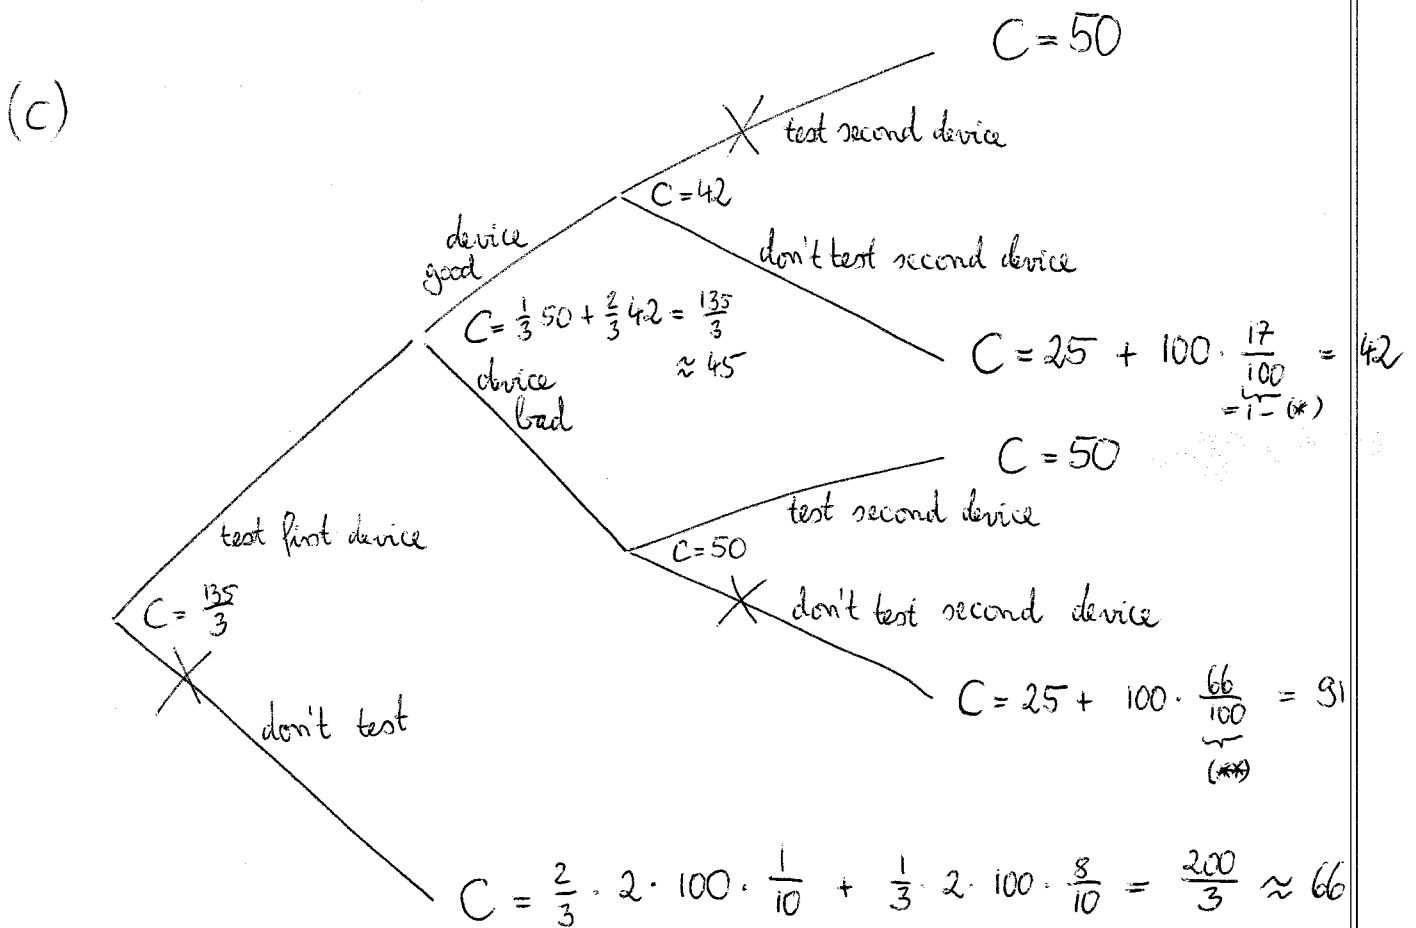 C = 50
(C)
test second device
C = 42
device
good
don't test second device
C = 1/3 50 + 2/3 42 = 135/3
≈ 45
C = 25 + 100 · 17/100 = 42
= 1 - (*)
device
bad
C = 50
test second device
C = 50
test first device
don't test second device
C = 135/3
C = 25 + 100 · 66/100 = 91
(**)
don't test
C = 2/3 · 2 · 100 · 1/10 + 1/3 · 2 · 100 · 8/10 = 200/3 ≈ 66